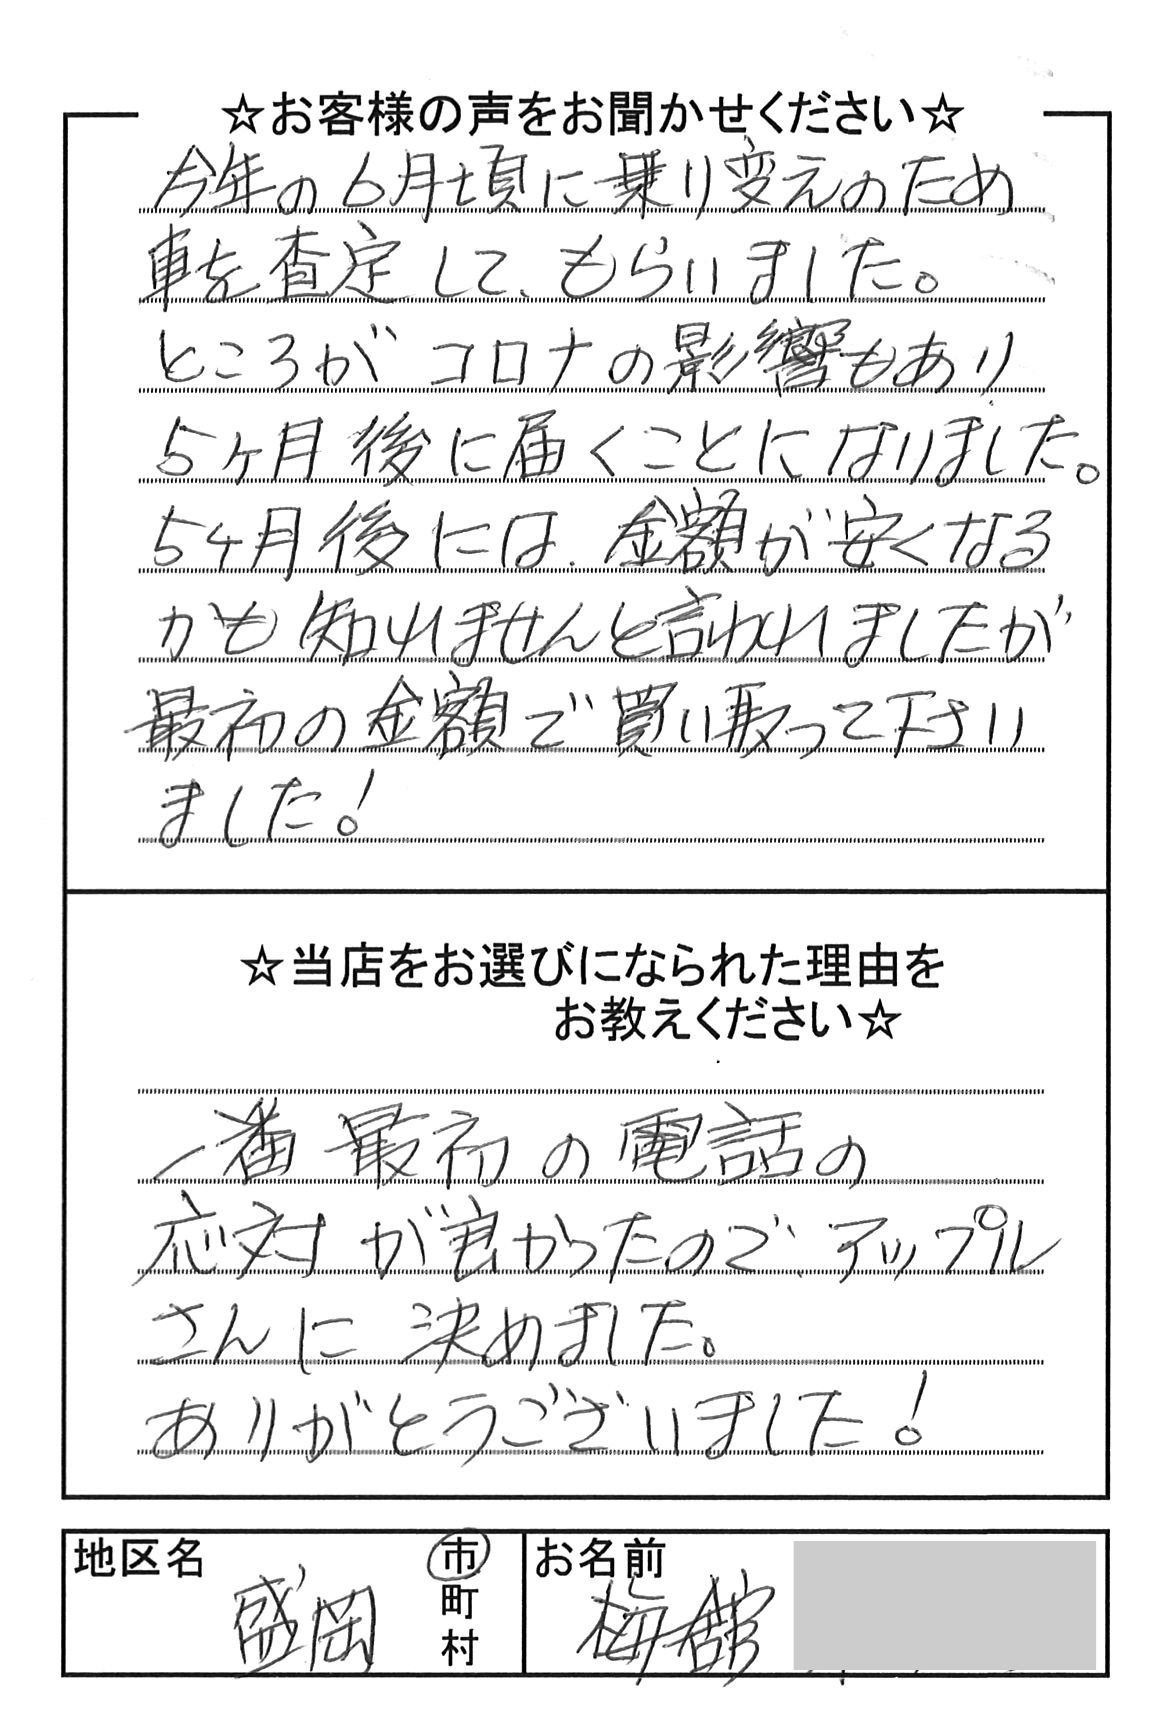 ☆お客様の声をお聞かせください☆
今年の6月頃に乗り変えのため
車を査定して、もらいました。
ところがコロナの影響もあり
5ヶ月後に届くことになりました。
5ヶ月後には、金額が安くなる
かも知れませんと言われましたが
最初の金額で買い取って下さい
ました!
☆当店をお選びになられた理由を
お教えください☆
一番最初の電話の
応対が良かったので、アップル
さんに決めました。
ありがとうございました!
地区名 盛岡 市
町
村
お名前 梅舘